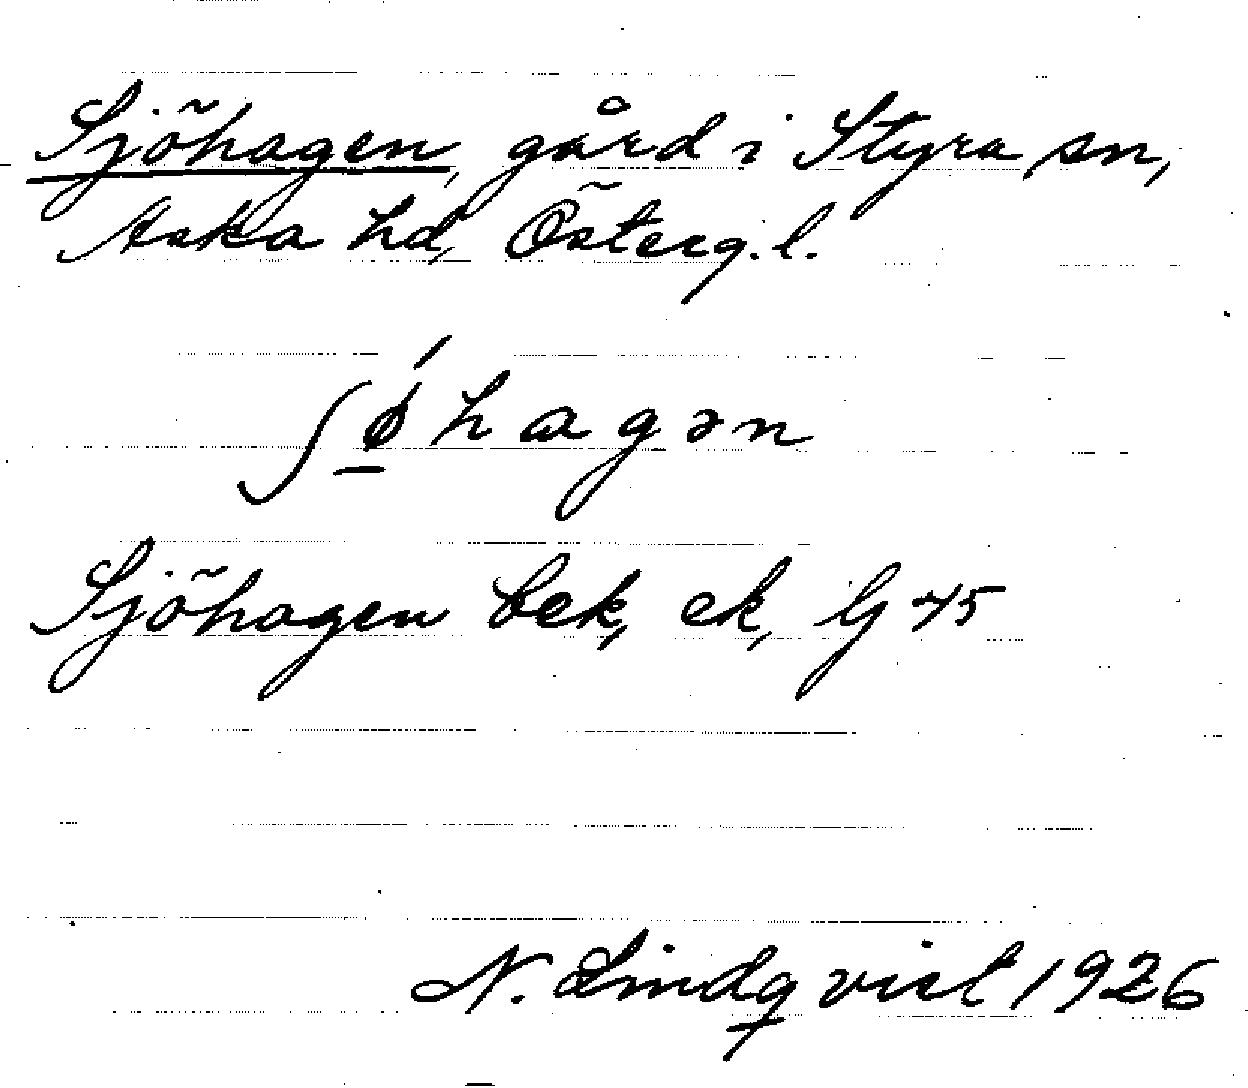 Sjöhagen, gård i Styra sn,
Aska hd, Österg.l.
ʃǿ̱hagən
Sjöhagen bek, ek, Gj 45
N. Lindqvist 1926